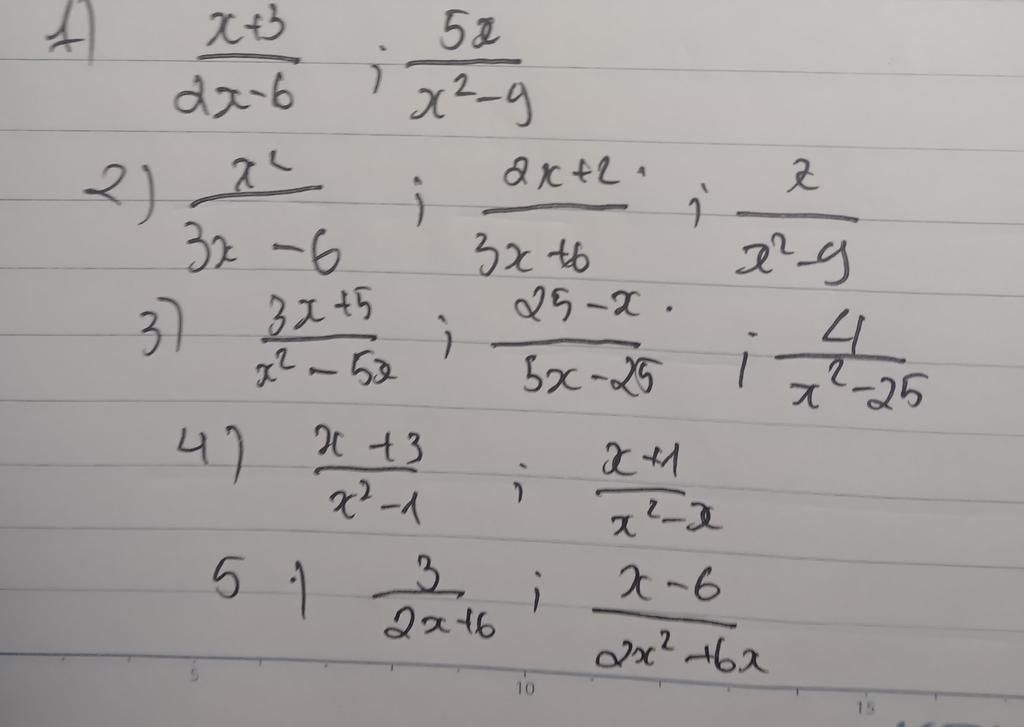 1) x+3 / 2x-6 ; 5x / x²-9
2) x² / 3x-6 ; 2x+2 / 3x+6 ; x / x²-9
3) 3x+5 / x²-5x ; 25-x / 5x-25 ; 4 / x²-25
4) x+3 / x²-1 ; x+1 / x²-x
5) 3 / 2x+6 ; x-6 / 2x²+6x
5 10 15